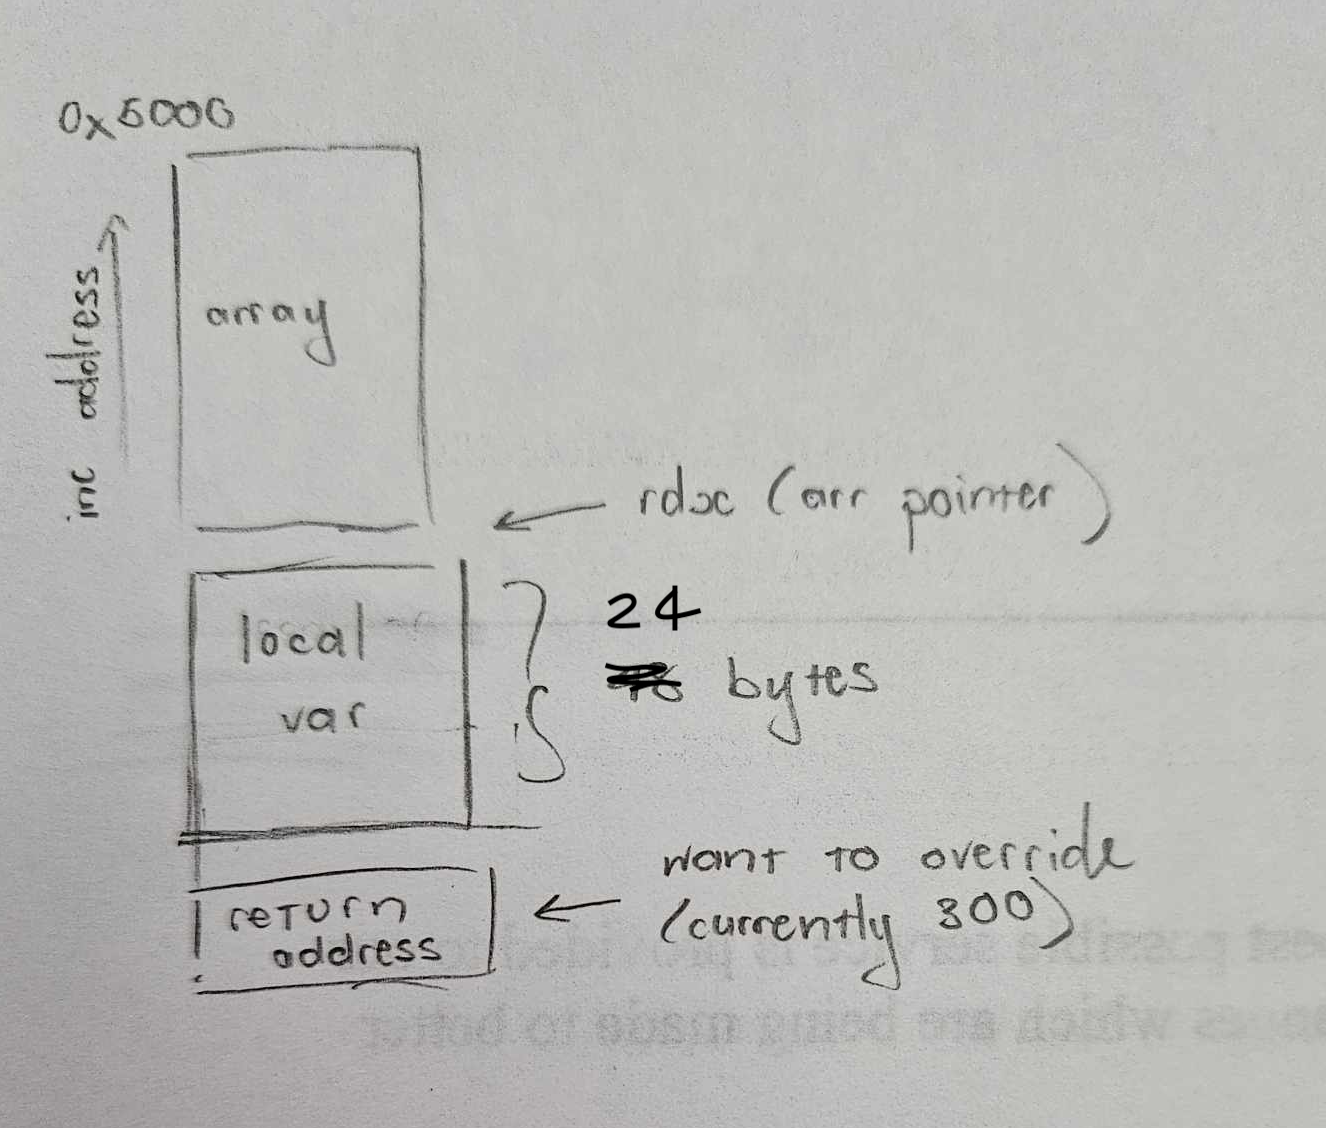 0x5000
inc address
array
rdx (arr pointer)
local
var
24
bytes
return
address
want to override
(currently 300)